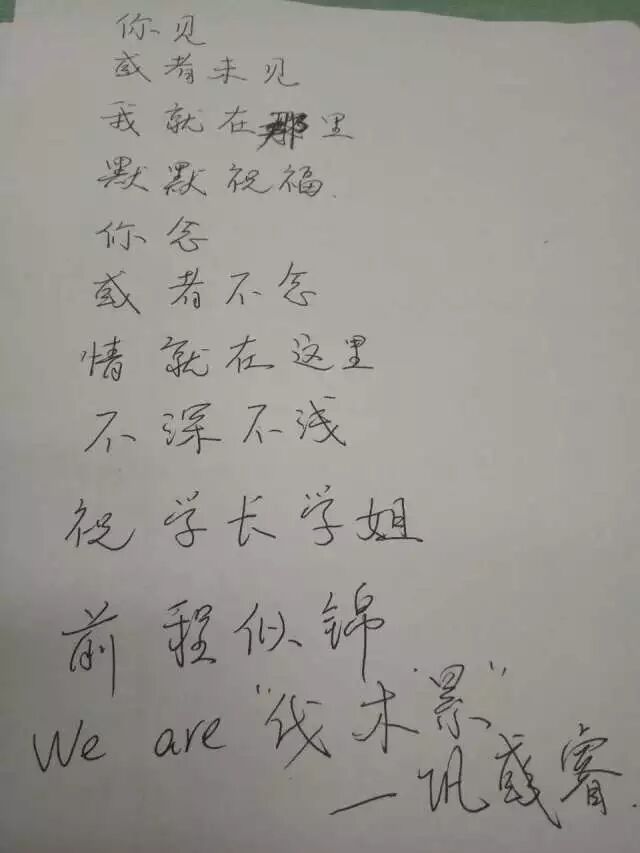 你见
或者未见
我就在那里
默默祝福.
你念
或者不念
情就在这里
不深不浅
祝学长学姐
前程似锦
We are "伐木累"
一巩彧睿.